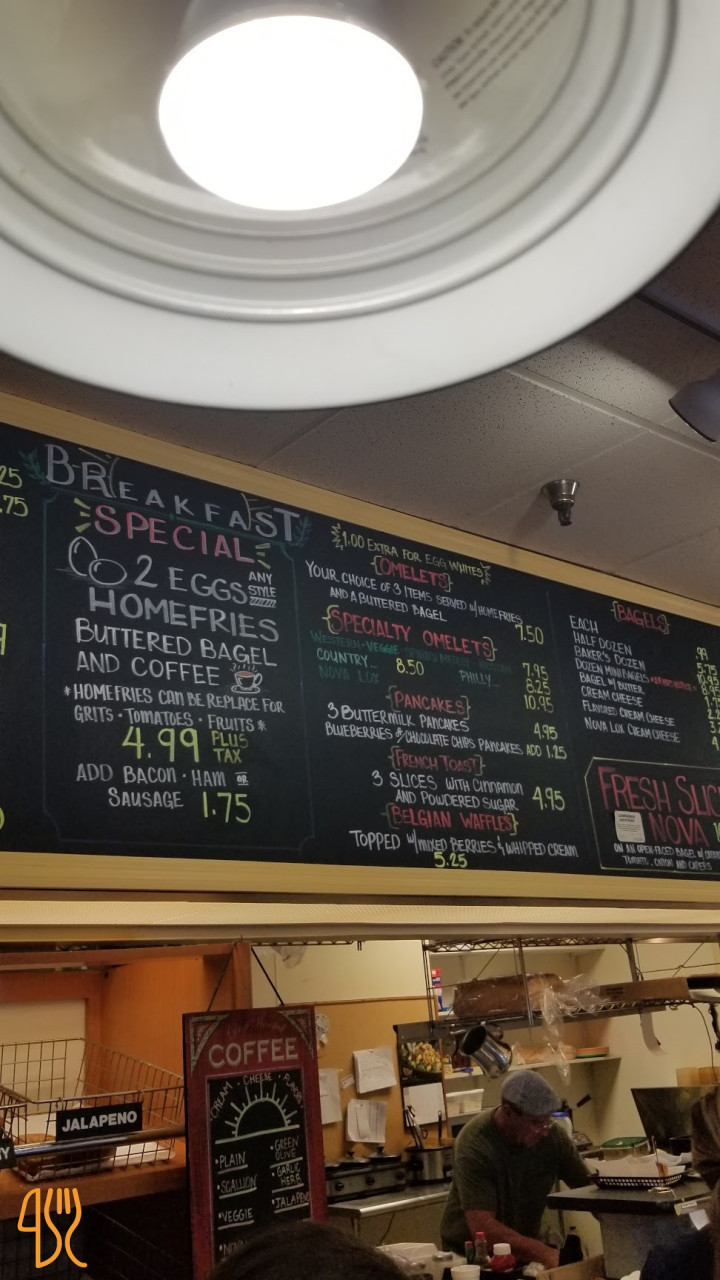 25
.75
BREAKFAST
SPECIAL
2 EGGS ANY STYLE
HOMEFRIES
BUTTERED BAGEL
AND COFFEE
*HOMEFRIES CAN BE REPLACE FOR
GRITS · TOMATOES · FRUITS *
4.99 PLUS TAX
ADD BACON · HAM OR
SAUSAGE 1.75
$1.00 EXTRA FOR EGG WHITES
{OMELETS}
YOUR CHOICE OF 3 ITEMS SERVED W/ HOMEFRIES
AND A BUTTERED BAGEL 7.50
{SPECIALTY OMELETS}
WESTERN · VEGGIE 7.95
COUNTRY... 8.50 PHILLY... 8.25
NOVA LOX 10.95
{PANCAKES}
3 BUTTERMILK PANCAKES 4.95
BLUEBERRIES & CHOCOLATE CHIPS PANCAKES ADD 1.25
{FRENCH TOAST}
3 SLICES WITH CINNAMON
AND POWDERED SUGAR 4.95
{BELGIAN WAFFLES}
TOPPED W/ MIXED BERRIES & WHIPPED CREAM
5.25
{BAGELS}
EACH .99
HALF DOZEN
BAKER'S DOZEN
DOZEN MINI BAGELS
BAGEL W/ BUTTER
CREAM CHEESE
FLAVORED CREAM CHEESE
NOVA LOX CREAM CHEESE
FRESH SLIC
NOVA
ON AN OPEN-FACED BAGEL W/ CREAM
TOMATO, ONION AND CAPERS
COFFEE
CREAM · CHEESE · FLAVORS
·PLAIN
·SCALLION
·VEGGIE
·GREEN OLIVE
·GARLIC HERB
·JALAPENO
JALAPENO